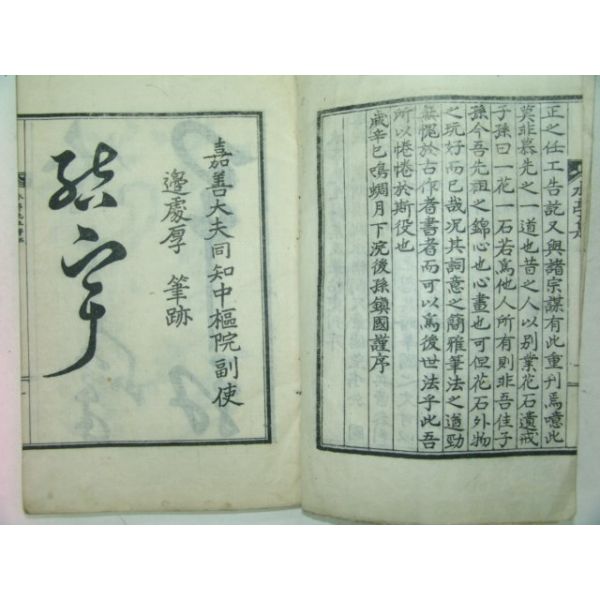 正之任工告訖又與諸宗謀有此重刊焉噫此
莫非慕先之一道也昔之人以別業花石遺戒
子孫曰一花一石若爲他人所有則非吾佳子
孫今吾先祖之錦心也心畫也可但花石外物
之玩好而已哉況其詞意之簡雅筆法之遒勁
無愧於古作者書者而可以爲後世法乎此吾
所以惓惓於斯役也
歲辛巳鳴蜩月下浣後孫鎭國謹序
嘉善大夫同知中樞院副使
邊慶厚 筆跡